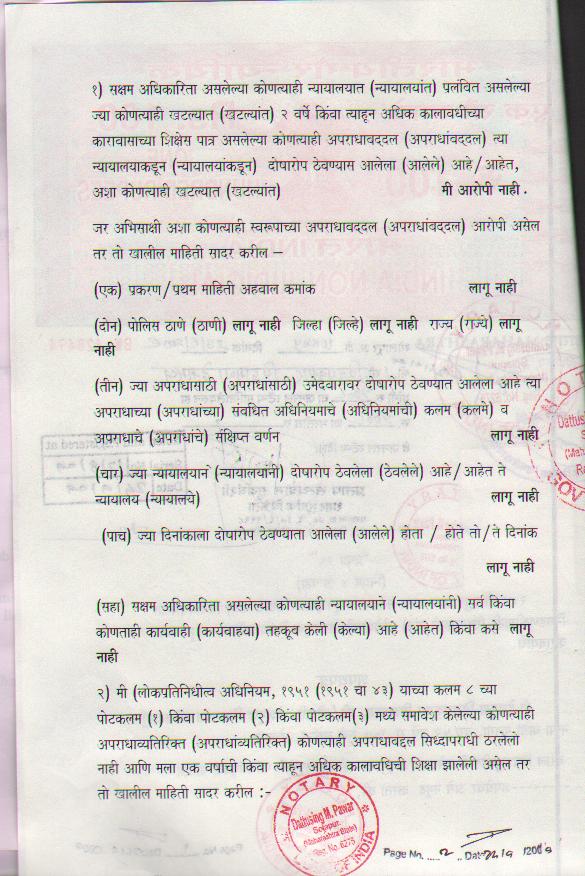 १) सक्षम अधिकारिता असलेल्या कोणत्याही न्यायालयात (न्यायालयांत) प्रलंवित असलेल्या
ज्या कोणत्याही खटल्यात (खटल्यांत) २ वर्षे किंवा त्याहून अधिक कालावधीच्या
कारावासाच्या शिक्षेस पात्र असलेल्या कोणत्याही अपराधावद्दल (अपराधांवद्दल) त्या
न्यायालयाकडून (न्यायालयांकडून) दोषारोप ठेवण्यास आलेला (आलेले) आहे/आहेत,
अशा कोणत्याही खटल्यात (खटल्यांत) मी आरोपी नाही.
जर अभिसाक्षी अशा कोणत्याही स्वरूपाच्या अपराधावद्दल (अपराधांवद्दल) आरोपी असेल
तर तो खालील माहिती सादर करील –
(एक) प्रकरण/प्रथम माहिती अहवाल कमांक लागू नाही
(दोन) पोलिस ठाणे (ठाणी) लागू नाही जिल्हा (जिल्हे) लागू नाही राज्य (राज्ये) लागू
नाही
(तीन) ज्या अपराधासाठी (अपराधांसाठी) उमेदवारावर दोषारोप ठेवण्यात आलेला आहे त्या
अपराधाच्या (अपराधांच्या) संवधित अधिनियमाचे (अधिनियमांची) कलम (कलमे) व
अपराधाचे (अपराधांचे) संक्षिप्त वर्णन लागू नाही
(चार) ज्या न्यायालयाने (न्यायालयांनी) दोषारोप ठेवलेला (ठेवलेले) आहे/आहेत ते
न्यायालय (न्यायालये) लागू नाही
(पाच) ज्या दिनांकाला दोषारोप ठेवण्याता आलेला (आलेले) होता / होते तो/ते दिनांक
लागू नाही
(सहा) सक्षम अधिकारिता असलेल्या कोणत्याही न्यायालयाने (न्यायालयांनी) सर्व किंवा
कोणताही कार्यवाही (कार्यवाहया) तहकूव केली (केल्या) आहे (आहेत) किंवा कसे लागू
नाही
२) मी (लोकप्रतिनिधीत्व अधिनियम, १९५१ (१९५१ चा ४३) याच्या कलम ८ च्या
पोटकलम (१) किंवा पोटकलम (२) किंवा पोटकलम(३) मध्ये समावेश केलेल्या कोणत्याही
अपराधाव्यतिरिक्त (अपराधांव्यतिरिक्त) कोणत्याही अपराधावद्दल सिध्दापराधी ठरलेलो
नाही आणि मला एक वर्षाची किंवा त्याहून अधिक कालावधिची शिक्षा झालेली असेल तर
तो खालील माहिती सादर करील :-
NOTARY
Dattusing M. Pawar
Solapur.
(Maharashtra State)
Reg. No. 6275
OF INDIA
Page No. 2 Date